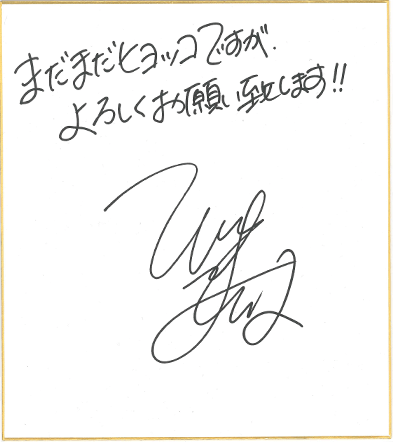 まだまだヒヨッコですが、
よろしくお願い致します!!